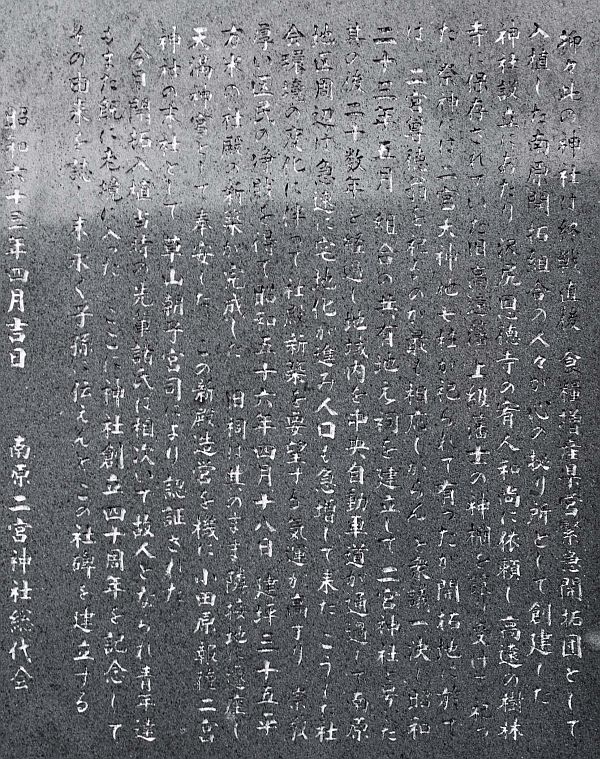 抑々此の神社は終戦直後 食糧増産県営緊急開拓団として
入植した南原開拓組合の人々が心の拠り所として創建した
神社設立にあたり 沢尻恩徳寺の有人和尚に依頼し 高遠の樹林
寺に保存されていた旧高遠藩 上級藩士の神棚を譲り受けて 祀っ
た 祭神には二宮天神地七社が祀られて有ったが開拓地に於て
は 二宮尊徳翁を祀るのが最も相応しからんと衆議一決し昭和
二十三年五月 組合の共有地え祠を建立して 二宮神社と号した
其の後二十数年を経過し地域内を中央自動車道が通過して南原
地区周辺は急速に宅地化が進み人口も急増して来た こうした社
会環境の変化に伴って社殿新築を要望する気運が高まり 崇敬
厚い区民の浄財を得て昭和五十六年四月十八日 建坪二十五平
方米の社殿の新築が完成した 旧祠は其のまま隣接地に遷座し
天満神宮として奉安した この新殿造営を機に小田原報徳二宮
神社の末社として 草山朝子宮司により認証された
今日開拓入植当時の先輩諸氏は相次いで故人となられ青年達
もまた既に老境に入った ここに神社創立四十周年を記念して
その由来を誌し 末永く子孫に伝えんとこの社碑を建立する
昭和六十三年四月吉日 南原二宮神社総代会